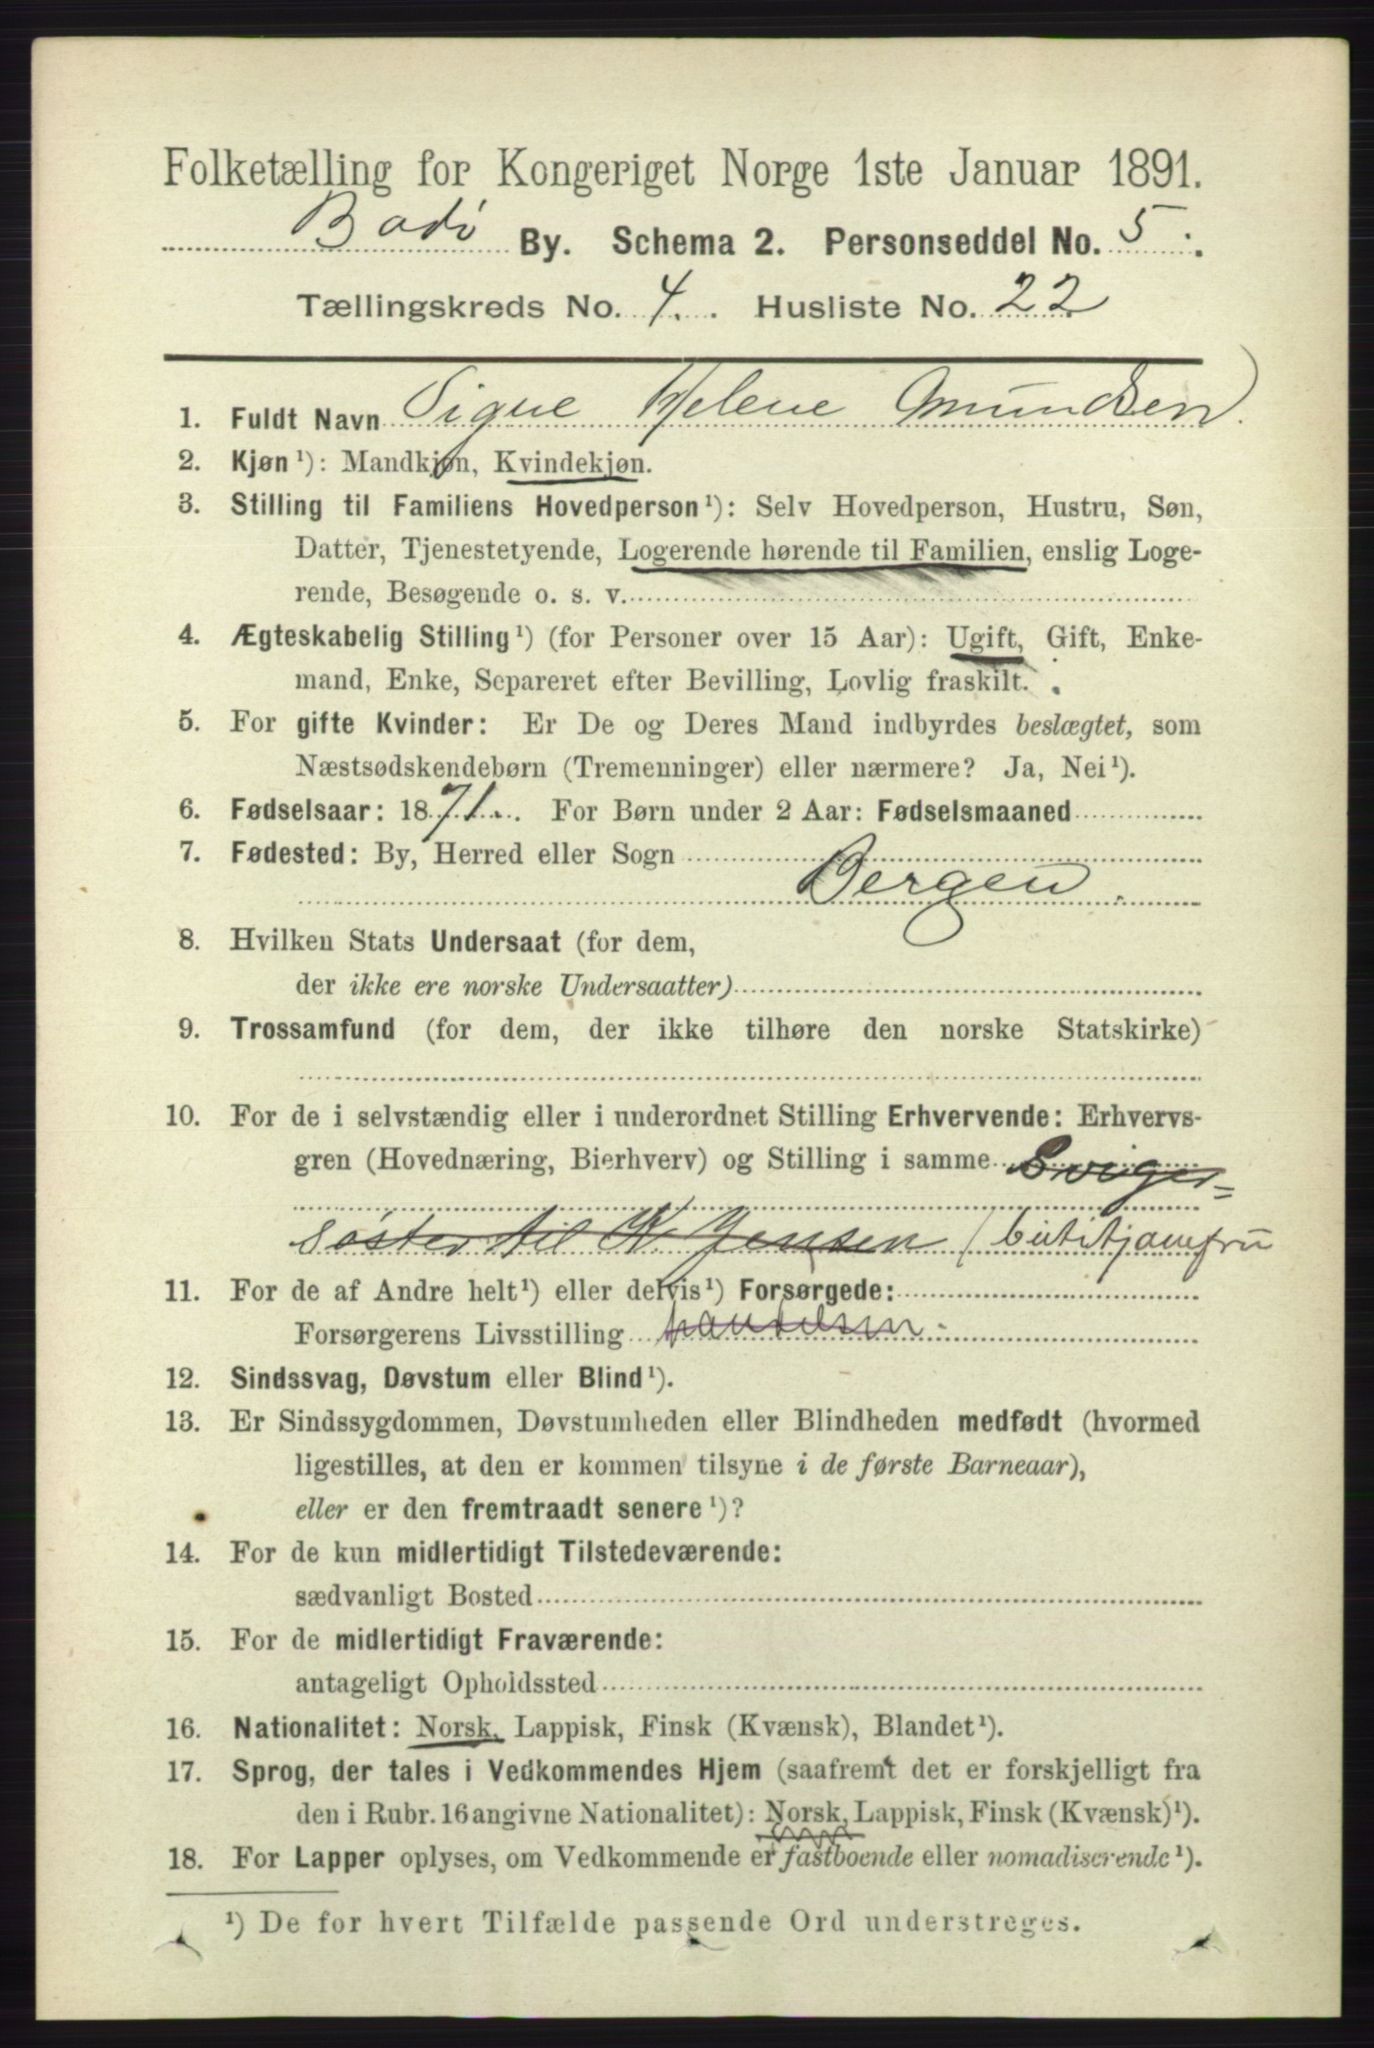 Folketælling for Kongeriget Norge 1ste Januar 1891.
Bodø By. Schema 2. Personseddel No. 5.
Tællingskreds No. 4. Husliste No. 22
1. Fuldt Navn Signe Helene Amundsen
2. Kjøn¹): Mandkjøn, Kvindekjøn.
3. Stilling til Familiens Hovedperson¹): Selv Hovedperson, Hustru, Søn,
Datter, Tjenestetyende, Logerende hørende til Familien, enslig Loge-
rende, Besøgende o. s. v.
4. Ægteskabelig Stilling¹) (for Personer over 15 Aar): Ugift, Gift, Enke-
mand, Enke, Separeret efter Bevilling, Lovlig fraskilt.
5. For gifte Kvinder: Er De og Deres Mand indbyrdes beslægtet, som
Næstsødskendebørn (Tremenninger) eller nærmere? Ja, Nei¹).
6. Fødselsaar: 1871. For Børn under 2 Aar: Fødselsmaaned
7. Fødested: By, Herred eller Sogn
Bergen.
8. Hvilken Stats Undersaat (for dem,
der ikke ere norske Undersaatter)
9. Trossamfund (for dem, der ikke tilhøre den norske Statskirke)
10. For de i selvstændig eller i underordnet Stilling Erhvervende: Erhvervs-
gren (Hovednæring, Bierhverv) og Stilling i samme Sviger=
søster til K. Jensen / butikjomfru
11. For de af Andre helt¹) eller delvis¹) Forsørgede:
Forsørgerens Livsstilling
12. Sindssvag, Døvstum eller Blind¹).
13. Er Sindssygdommen, Døvstumheden eller Blindheden medfødt (hvormed
ligestilles, at den er kommen tilsyne i de første Barneaar),
eller er den fremtraadt senere¹)?
14. For de kun midlertidigt Tilstedeværende:
sædvanligt Bosted
15. For de midlertidigt Fraværende:
antageligt Opholdssted
16. Nationalitet: Norsk, Lappisk, Finsk (Kvænsk), Blandet¹).
17. Sprog, der tales i Vedkommendes Hjem (saafremt det er forskjelligt fra
den i Rubr. 16 angivne Nationalitet): Norsk, Lappisk, Finsk (Kvænsk)¹).
18. For Lapper oplyses, om Vedkommende er fastboende eller nomadiserende¹).
¹) De for hvert Tilfælde passende Ord understreges.